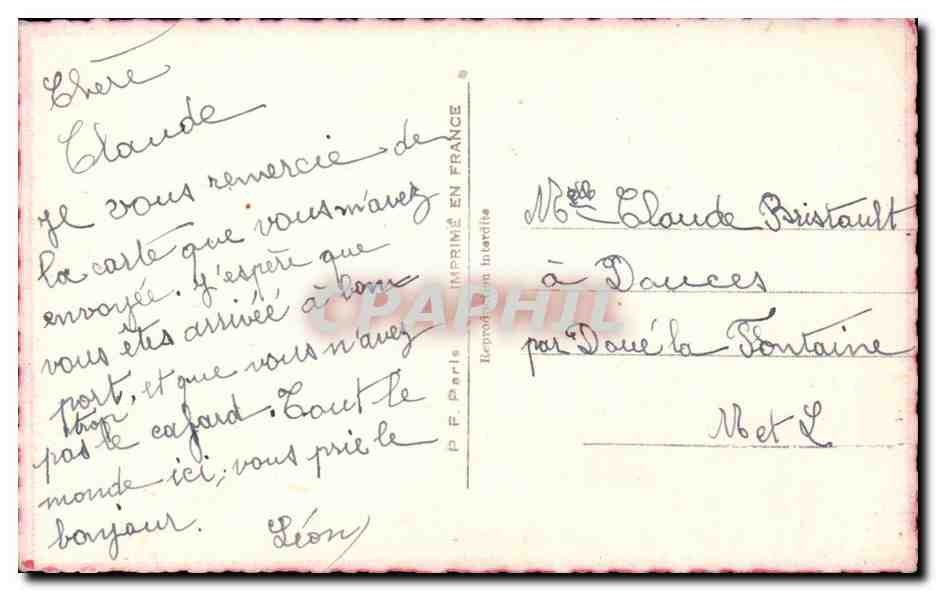 Chère
Claude
Je vous remercie de
la carte que vous m'avez
envoyée. J'espère que
vous êtes arrivée à bon
port, et que vous n'avez
trop
pas le cafard. Tout le
monde ici, vous prie le
bonjour.
Léon
P F. Paris IMPRIMÉ EN FRANCE
Reproduction interdite
CPAPHIL
Melle Claude Bristault
à Douces
par Doué la Fontaine
M et L